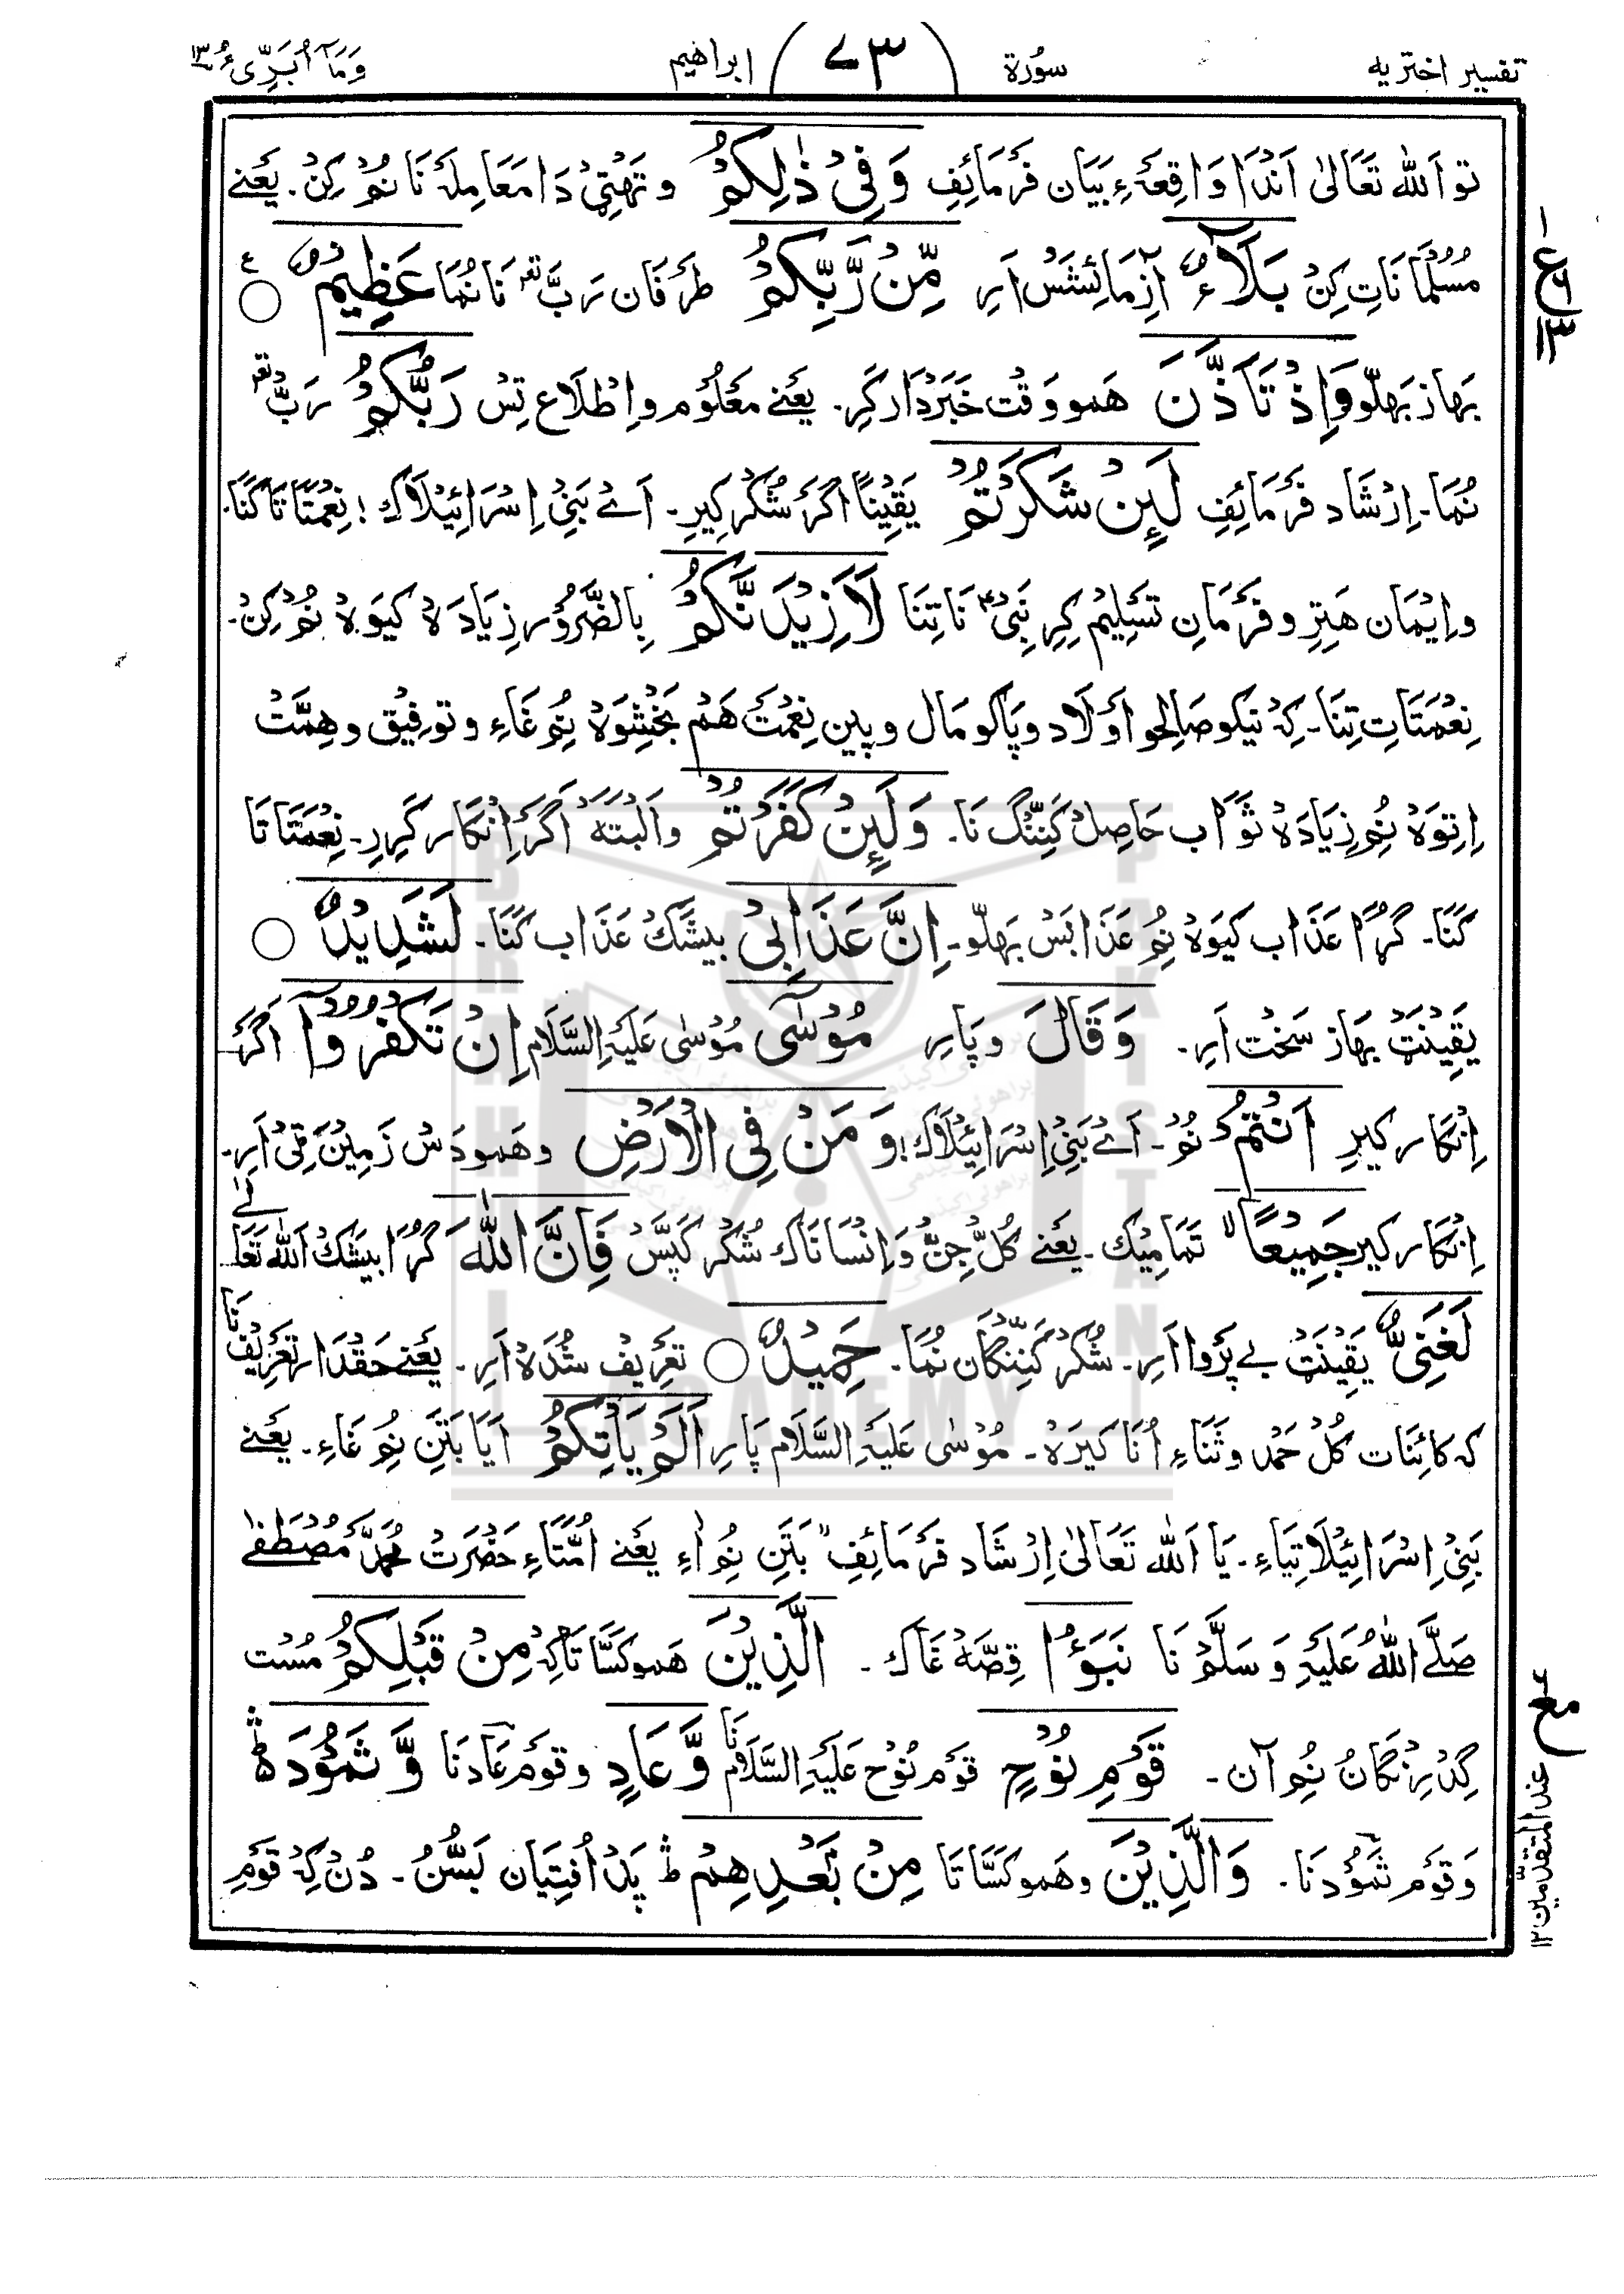 تفسیر اختریه سورة ٧٣ ابراهیم وَمَآ اُبَرِّئُ ١٣
تو اَللّٰه تَعَالیٰ اَندَا وَاقِعَهٔ ءِ بَیَان فَرمَائِفِ وَفِیْ ذٰلِکُمْ و تَهْتِیْ دَا مَعَامِلهٔ نَا نُمْ کِنْ. یَعْنے
مُسُلمَانَاتِ کِنْ بَلَآءٌ آزِمَائِشَسْ اَرِ مِّنْ رَّبِّکُمْ طَرَفَان رَبَّ نَا نُمَا عَظِیْمٌ ○ ع
بَهَاز بَهلّو وَاِذْ تَاَذَّنَ هَمو وَقْت خَبَردَار کَرِ. یَعْنے مَعْلُوْم و اِطْلَاع تِسْ رَبُّکُمْ رَبَّ
نُمَا۔ اِرْشَاد فَرمَائِفِ لَئِنْ شَکَرْتُمْ یَقِیْنًا اَگَرْ شُکر کِیرِ۔ اَے بَنِیْ اِسْرَائِیْلَاک! نِعْمَتَاتَا کَنَا۔
و اِیْمَان هَتِرِ و فَرمَانِ تَسْلِیْم کِرِ نَبِیْ نَا تِنَا لَاَزِیْدَنَّکُمْ بِالضَّرُوْر زِیَادَهْ کیوَهْ نُمْ کِنْ۔
نِعْمَتَاتِ تِنَا۔ کِهْ نیکو صَالِحو اَوْلَاد و پَاکو مَال و پین نِعْمَتْ هَمْ بَخْشِوَهْ نُمْ غَاءِ و تَوفِیْق و هِمَّتْ
اِتِوَهْ نُمْ زِیَادَهْ ثَوَاب حَاصِلْ کَنِنْگ نَا۔ وَلَئِنْ کَفَرْتُمْ و اَلبَتَه اَگَرْ اِنْکَار کَرِرِ۔ نِعْمَتَاتَا
کَنَا۔ گُرَا عَذَاب کیوَهْ نُمْ عَذَابَسْ بَهلّو۔ اِنَّ عَذَابِیْ بیشَکْ عَذَاب کَنَا۔ لَشَدِیْدٌ ○
یَقِیْنَتْ بَهَاز سَخْت اَرِ. وَقَالَ و پَارِ مُوْسٰٓی مُوْسٰی عَلَیْهِ السَّلَام اِنْ تَکْفُرُوْٓا اَگَرْ
اِنْکَار کیرِ اَنْتُمْ نُمْ۔ اَے بَنِیْ اِسْرَائِیْلَاک! وَمَنْ فِی الْاَرْضِ و هَمو دَسْ زَمِیْن تِیْ اَرِ۔
اِنْکَار کیر جَمِیْعًا تَمَامِیْک۔ یَعْنے کُلّ جِنّ وَ اِنْسَانَاک شُکْر کَپَسْ فَاِنَّ اللّٰهَ گُرَا بیشَکْ اَللّٰه تَعَالٰے
لَغَنِیٌّ یَقِیْنَتْ بے پَرْوا اَرِ۔ شُکر کَنِنْگَان نُمَا۔ حَمِیْدٌ ○ تَعْرِیْف شُدَهْ اَرِ۔ یَعْنے حَقْدَار تَعْرِیْف نَا
که کائِنَات کُلْ حَمْد و ثَنَاءِ اُنَا کیرَهْ۔ مُوْسٰی عَلَیْهِ السَّلَام پَارِ اَلَمْ یَاْتِکُمْ اَیَا بَتَنِ نُمْ غَاءِ۔ یَعْنے
بَنِیْ اِسْرَائِیْلَاتِیَاءِ۔ یَا اَللّٰه تَعَالیٰ اِرْشَاد فَرمَائِفِ" بَتَنِ نُم اءِ یَعْنے اُمَّتَاءِ حَضْرَت مُحَمَّدْ مُصْطَفٰے
صَلَّے اللّٰهُ عَلَیْهِ وَ سَلَّمْ نَا نَبَؤُا قِصَّهْ غَاک۔ الَّذِیْنَ هَمو کَسَّاتَا کِهْ مِنْ قَبْلِکُمْ مُسْت
گِدْرِنْگَانُ نُم آن۔ قَوْمِ نُوْحٍ قَوْم نُوْح عَلَیْهِ السَّلَام نَا وَّعَادٍ و قَوْم عَاد نَا وَّثَمُوْدَ ط
وَ قَوْم ثَمُوْد نَا۔ وَالَّذِیْنَ و هَمو کَسَّاتَا مِنْ بَعْدِهِمْ ط پَدْ اُفتِیَان بَسُّنُ۔ دُنْ کِهْ قَوْمِ
ع
١٣
مع
عند المتقدمین ١٢
BRAHUI ACADEMY PAKISTAN